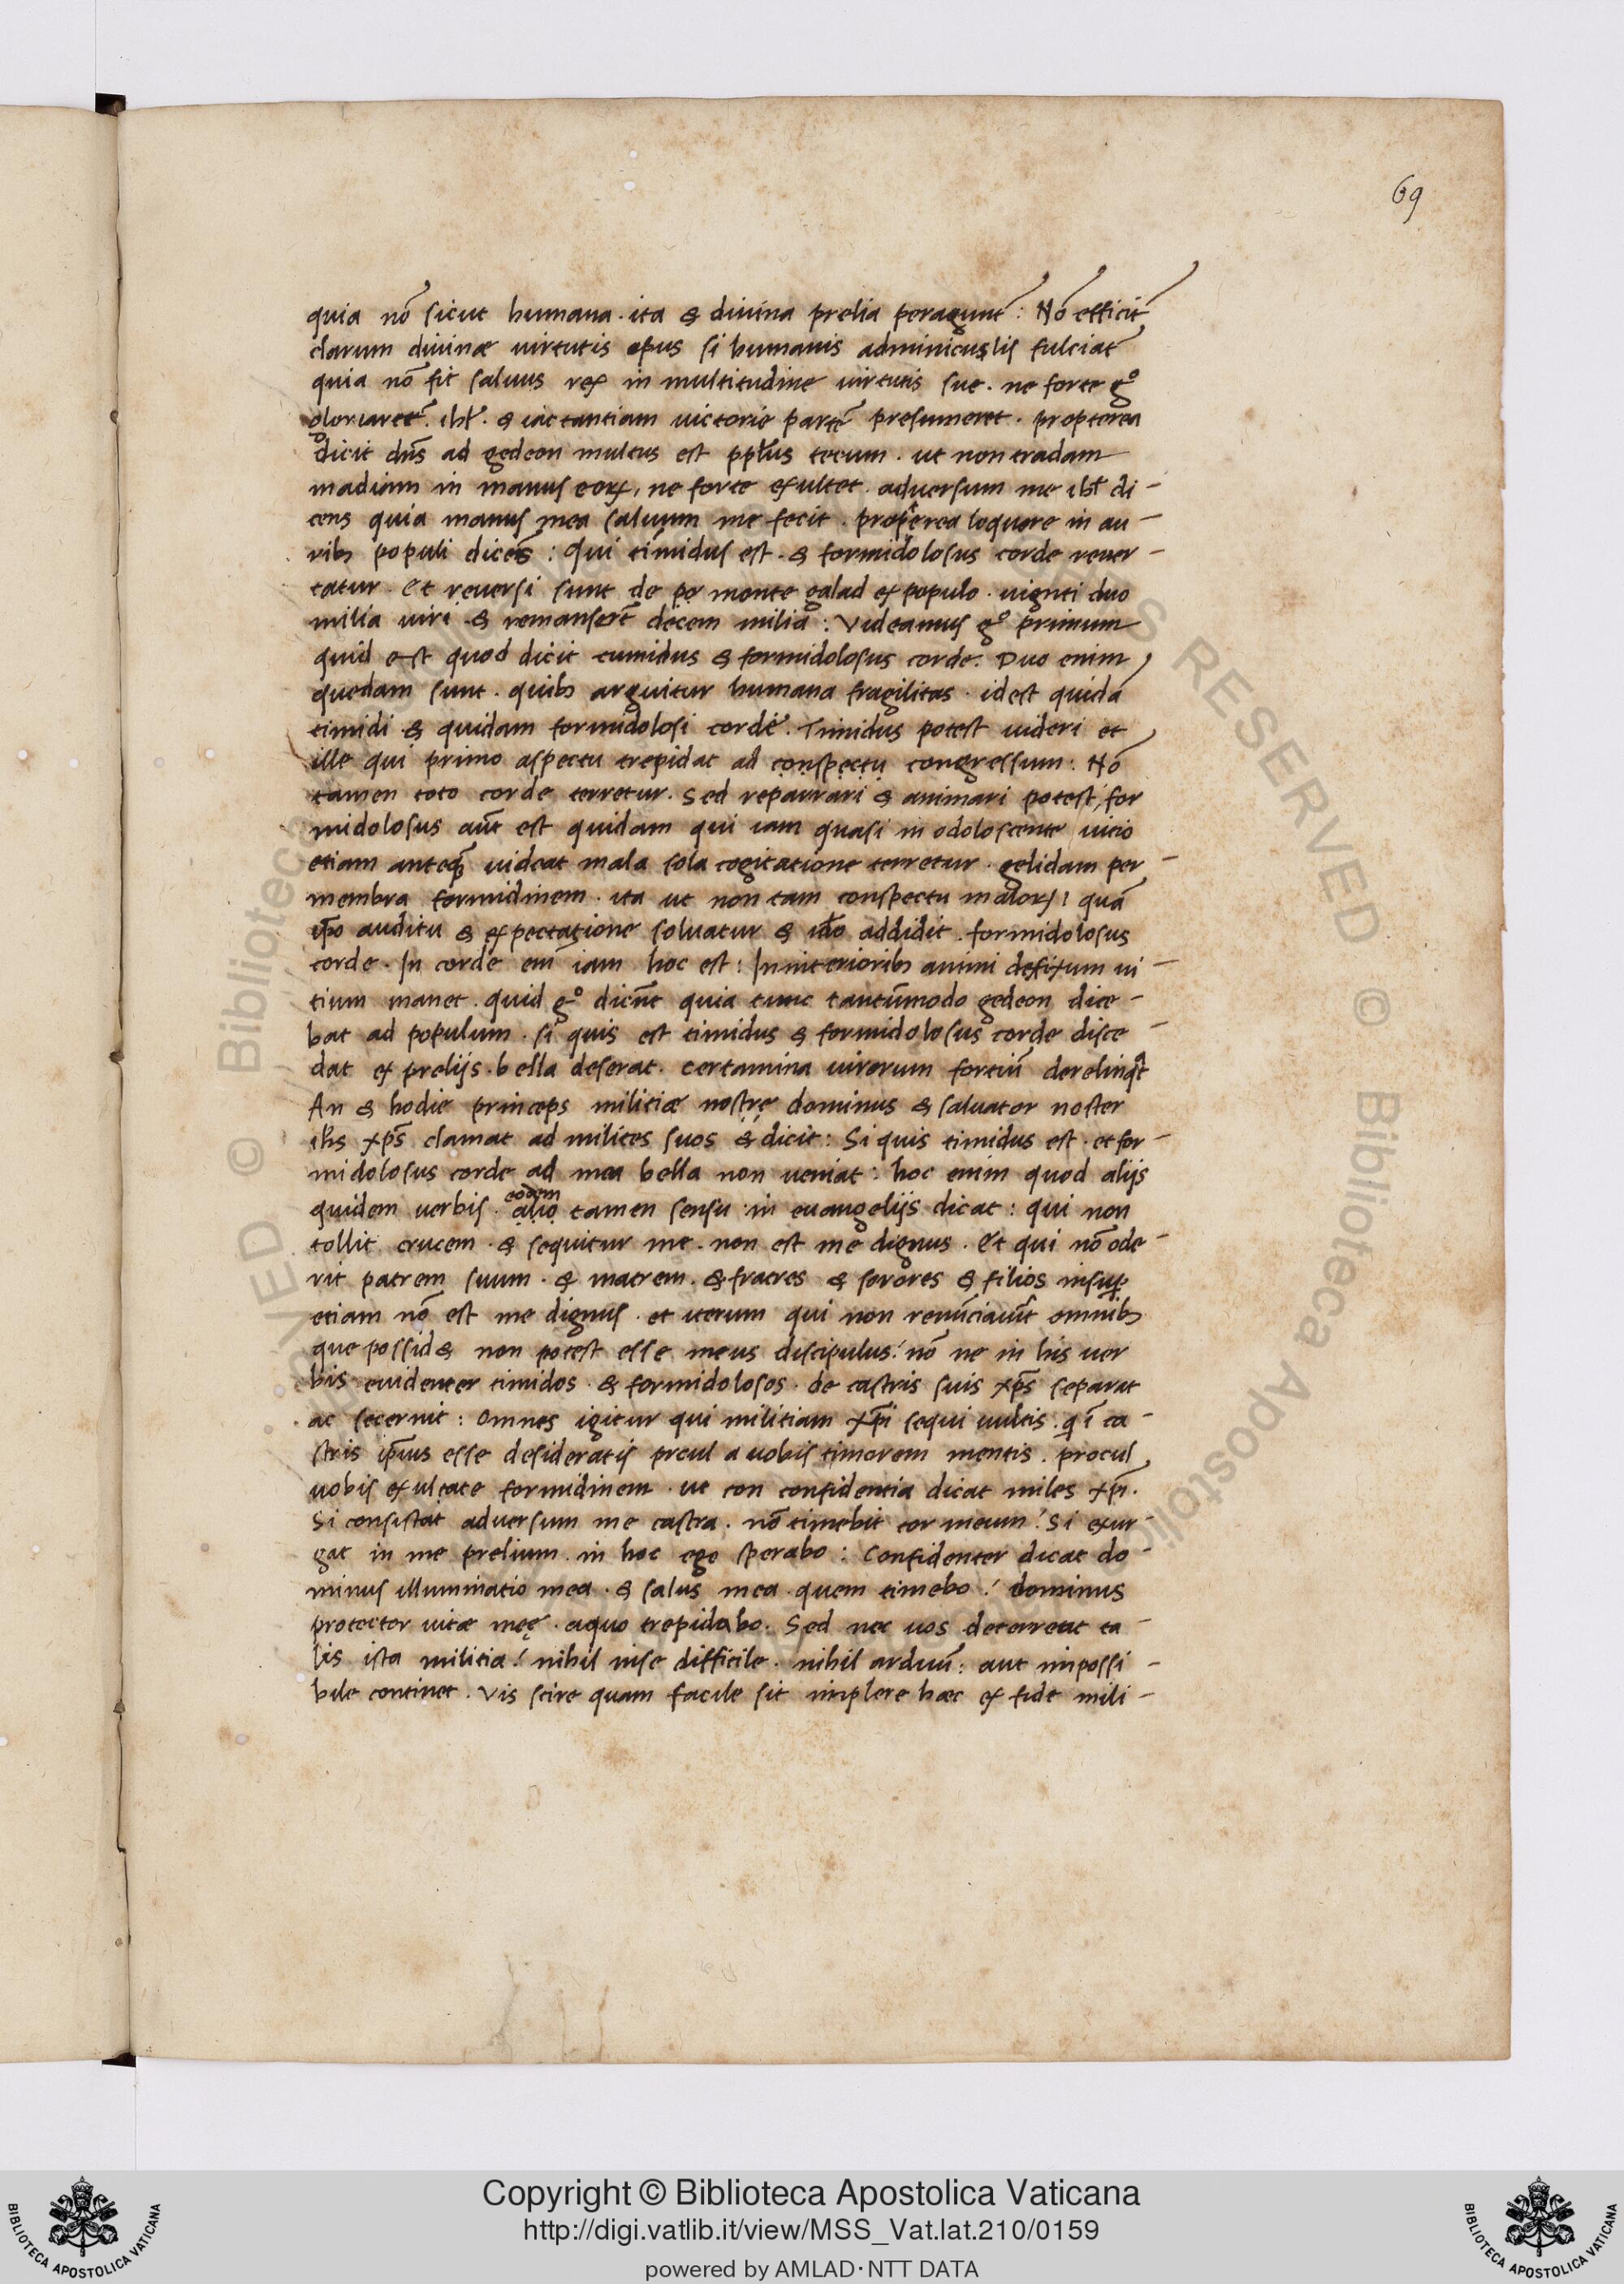 69
quia nō sicut humana. ita & diuina prelia peragunt̄: Nō efficit̄
clarum diuinæ uirtutis opus si humanis adminicuslis fulciat̄
quia nō fit saluus rex in multitudine uirtutis sue. ne forte g°
gloriaret̄. ihl̄. & iactantiam uictorie partē presumeret. propterea
dicit dn̄s ad gedeon multus est ppl̄us tecum. ut non tradam
madiam in manus eoꝝ, ne forte exultet. aduersum me ihl̄ di-
cens quia manus mea saluum me fecit. propterea loquere in au-
ribꝫ populi dicēs: Qui timidus est. & formidolosus corde reuer-
tatur. Et reuersi sunt de po monte galad ex populo. uignti duo
milia uiri & remanserūt decem milia: Videamus g° primum
quid est quod dicit tumidus & formidolosus corde. Duo enim
quedam sunt. quibꝫ arguitur humana fragilitas. idest quidā
timidi & quidam formidolosi corde. Timidus potest uideri et
ille qui primo aspectu trepidat ad conspectu congressum: Nō
tamen toto corde terretur. Sed reparrari & animari potest, for
midolosus aūt est quidam qui iam quasi in odoloscente uicio
etiam anteqꝫ uideat mala sola cogitatione terretur. gelidam per-
membra formidinem. ita ut non tam conspectu maloꝝ! quā
ip̄o auditu & expectatione soluatur & iđo addidit. formidolosus
corde. In corde eni iam hoc est: In interioribꝫ animi defixum ui-
tium manet. quid g° dicūt quia tunc tantūmodo gedeon dice-
bat ad populum. si quis est timidus & formidolosus corde disce-
dat ex prelijs. bella deserat. certamina uirorum fortiū derelinqͣt
An & hodie princeps militiæ nostrę dominus & saluator noster
ih̄s xp̄s clamat ad milites suos & dicit: Si quis timidus est. et for-
midolosus corde ad mea bella non ueniat: hoc enim quod alijs
eodem
quidem uerbis. alio tamen sensu in euangelijs dicat: qui non
tollit crucem. & sequitur me. non est me dignus. Et qui nō ode-
rit patrem suum. & matrem. & fratres & sorores & filios insuꝑ
etiam nō est me dignus. et iterum qui non renūciauūt omnibꝫ
que possid& non potest esse meus discipulus! nō ne in his uer
bis euidenter timidos. & formidolosos. de castris suis xp̄s separat
ac secernit: Omnes igitur qui militiam xp̄i sequi uultis. q ī ca-
stris ip̄ius esse desideratis prcul a uobis timorem mentis. procul
uobis exultate formidinem. ut con confidentia dicat miles xp̄i.
Si consistat aduersum me castra. nō timebit cor meum! Si exur-
gat in me prelium. in hoc ego sperabo: Confidenter dicat do-
minus illuminatio mea. & salus mea quem timebo! dominus
protector uitæ męę. a quo trepidabo. Sed nec uos deterreat ta-
lis ista militia! nihil inse difficile. nihil arduū: aut impossi-
bile continet. Vis scire quam facile sit implere hæc ex fide mili-
Copyright © Biblioteca Apostolica Vaticana
http://digi.vatlib.it/view/MSS_Vat.lat.210/0159
powered by AMLAD·NTT DATA